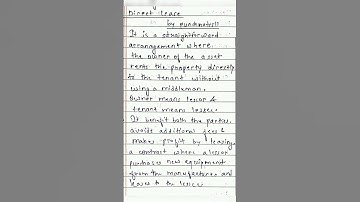 Direct lease
by pundmotes11
It is a straightforward
arrangement where
the owner of the asset
rents the property directly
to the tenant without
using a middleman.
Owner means lessor &
tenant means lessee.
It benefit both the parties
avoids additional fees &
makes profit by leasing
a contract where a lessor
purchases new equipment
from the manufacturer and
leases to the lessee